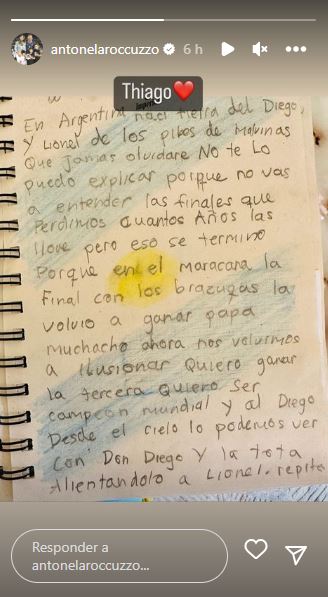 antonelaroccuzzo 6 h
Thiago
En Argentina naci tierra del Diego,
Y Lionel de los pibes de Malvinas
Que jamas olvidare No te Lo
puedo explicar porque no vas
a entender las finales que
Perdimos cuantos Años las
llore pero eso se termino
Porque en el maracana la
final con los brazugas la
volvio a ganar papa
muchacho ahora nos volvimos
a ilusionar Quiero ganar
la tercera Quiero ser
campeon mundial y al Diego
Desde el cielo lo podemos ver
con Don Diego y la tota
Alientandolo a Lionel. repita
Responder a
antonelaroccuzzo...